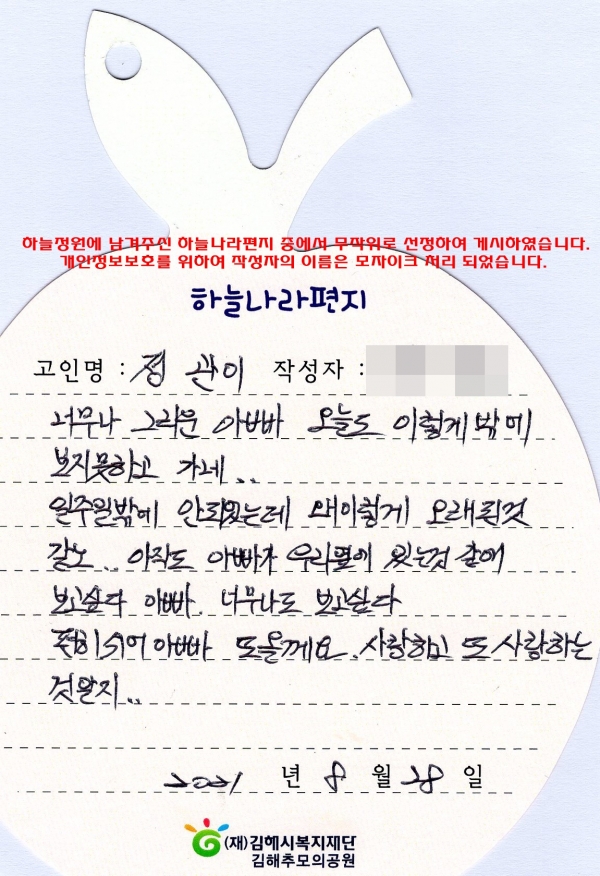 하늘정원에 남겨주신 하늘나라편지 중에서 무작위로 선정하여 게시하였습니다.
개인정보보호를 위하여 작성자의 이름은 모자이크 처리 되었습니다.
하늘나라편지
고인명 : 정관이 작성자 :
너무나 그리운 아빠빠 오늘도 이렇게 밖에
보지못하고 가네..
일주일밖에 안되었는데 왜이렇게 오래된것
같노.. 아직도 아빠가 우리옆에 있는것 같애
보고싶다 아빠. 너무나도 보고싶다
편히쉬어 아빠빠 또올께요. 사랑하고 또 사랑하는
것알지..
2021 년 8 월 28 일
(재)김해시복지재단
김해추모의공원